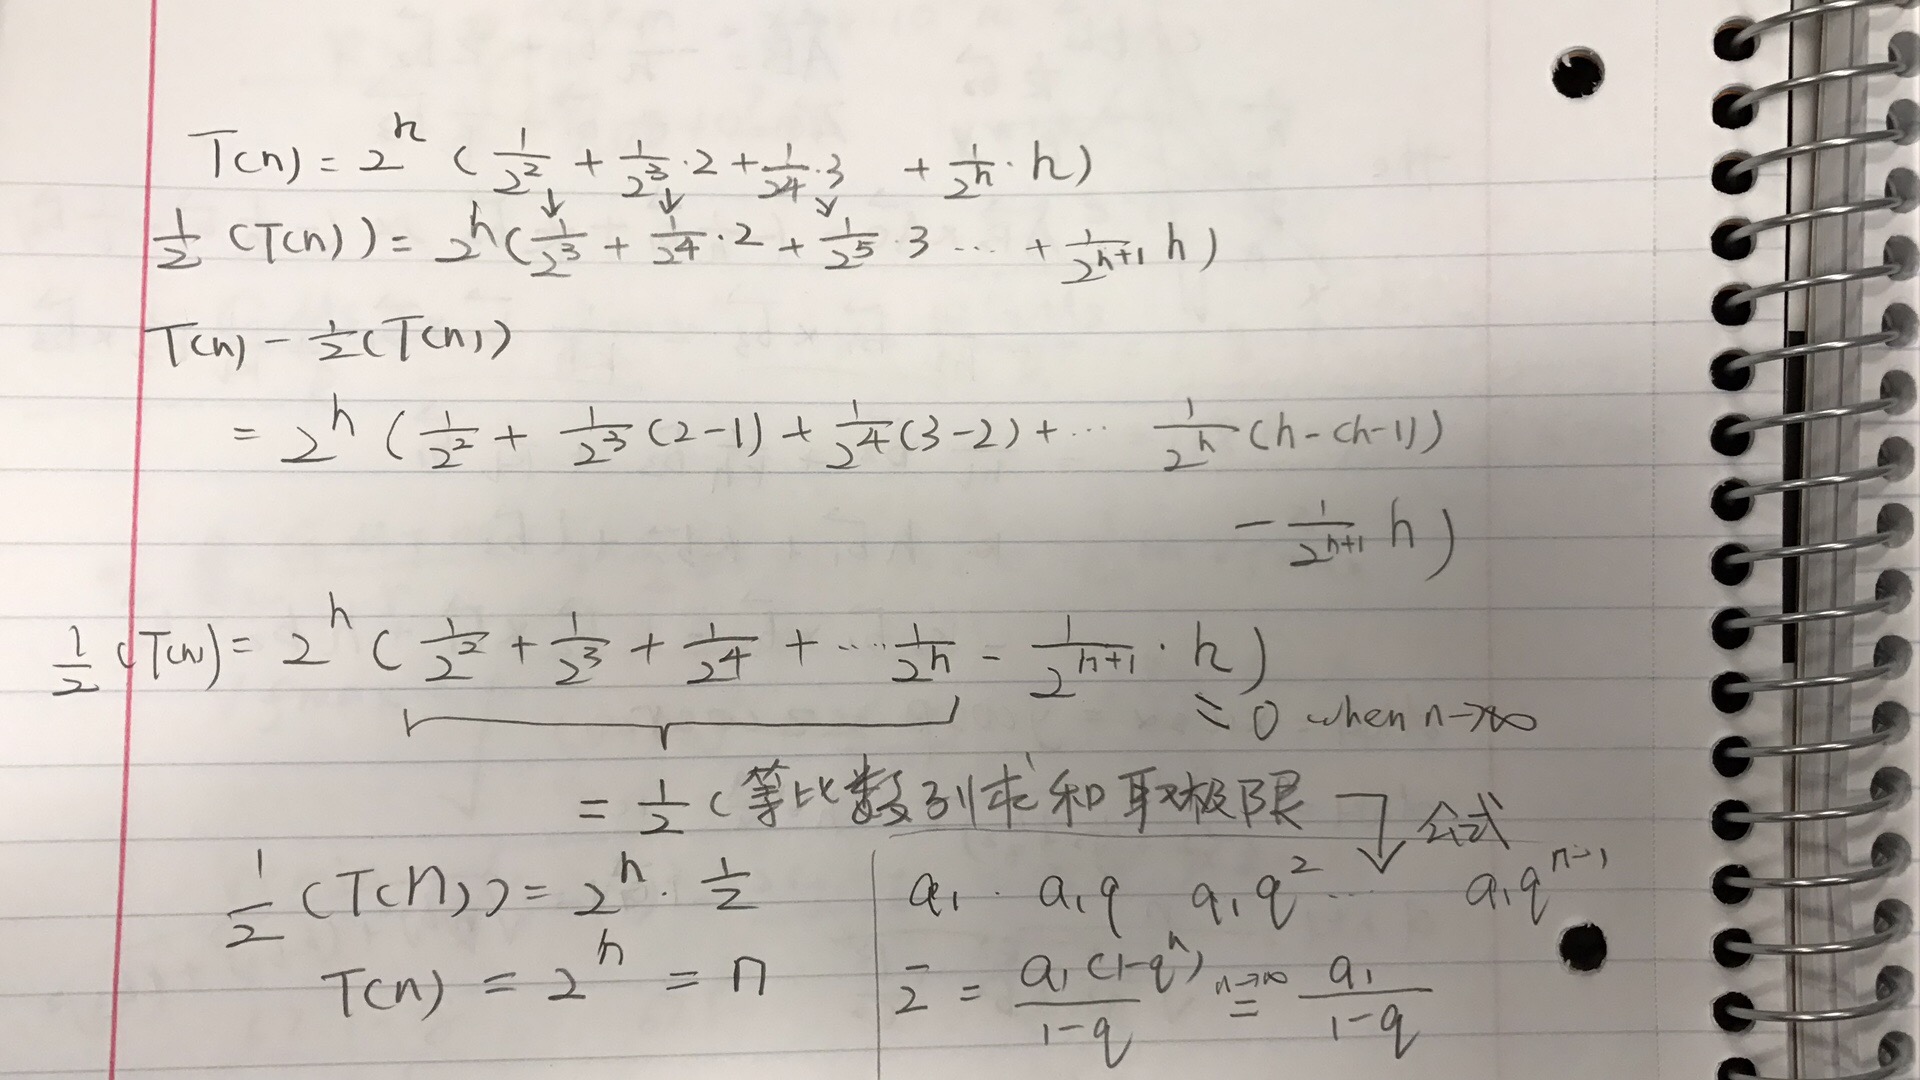 T(n) = 2^h ( 1/2^2 + 1/2^3 · 2 + 1/2^4 · 3 + 1/2^h · h )
1/2 (T(n)) = 2^h ( 1/2^3 + 1/2^4 · 2 + 1/2^5 · 3 ... + 1/2^{h+1} h )
T(n) - 1/2 (T(n))
= 2^h ( 1/2^2 + 1/2^3 (2-1) + 1/2^4 (3-2) + ... 1/2^h (h-(h-1))
- 1/2^{h+1} h )
1/2 (T(n)) = 2^h ( 1/2^2 + 1/2^3 + 1/2^4 + ... 1/2^h - 1/2^{h+1} · h )
= 0 when n→∞
= 1/2 ( 等比数列求和取极限
公式
1/2 (T(n)) = 2^h · 1/2
T(n) = 2^h = n
a₁ · a₁q a₁q^2 ... a₁q^{n-1}
Σ = a₁(1-q^n) / 1-q n→∞ = a₁ / 1-q